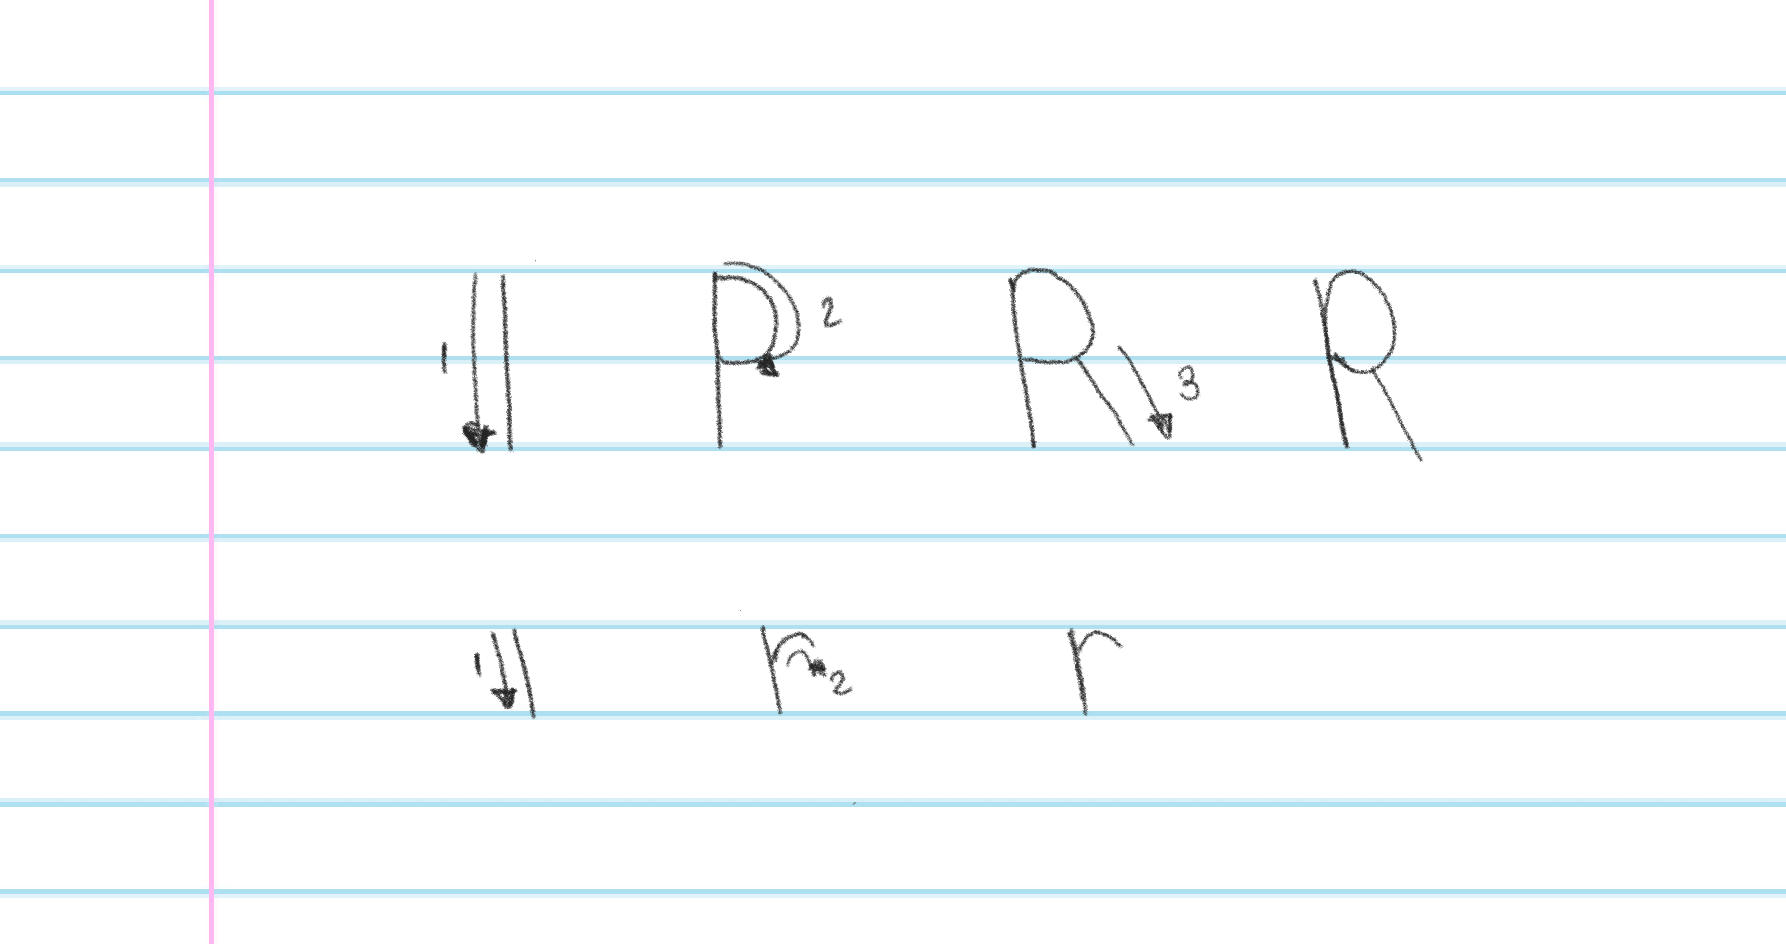 1 P 2 R 3 R
1 r 2 r